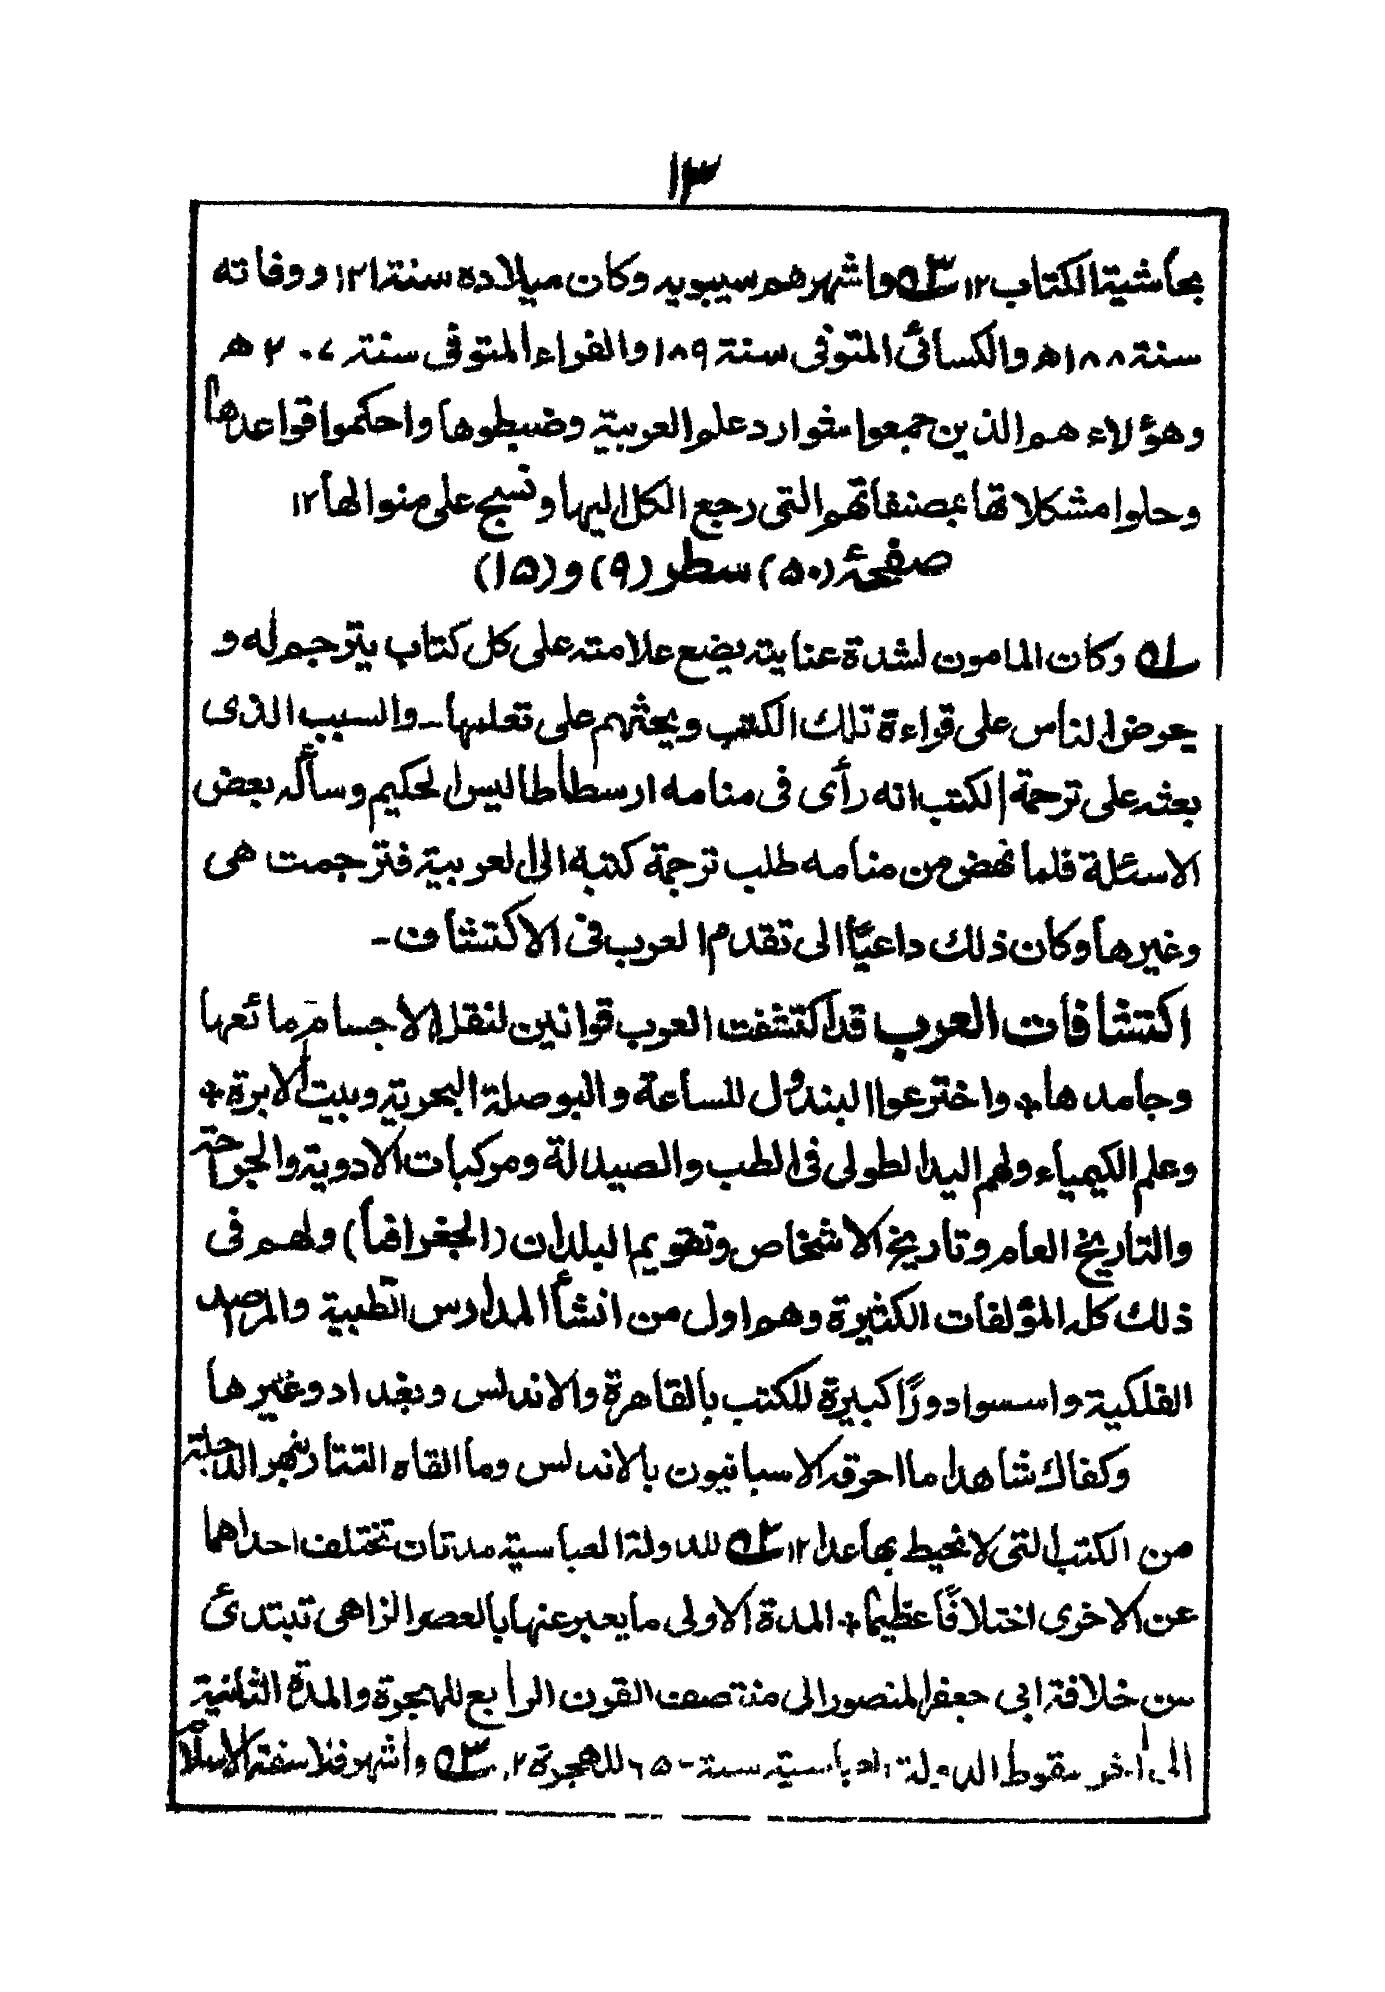 ١٣
بحاشية الكتاب ١٢ ٣ه واشهرهم سيبويه وكان ميلاده سنة ١٢١ ووفاته
سنة ١٨٨ه والكسائى المتوفى سنة ١٨٩ والفراء المتوفى سنة ٢٠٧ ه
وهؤلاء هم الذين جمعوا شوارد علم العربية وضبطوها واحكموا قواعدها
وحلوا مشكلاتها بمصنفاتهم التى رجع الكل اليها ونسج على منوالها ١٢
صفحة (٥٠) سطر (٩) و (١٥)
١ه وكان المامون لشدة عنايته يضع علامته على كل كتاب يترجم له و
يحرض الناس على قراءة تلك الكتب ويحثهم على تعلمها - والسبب الذى
بعثه على ترجمة الكتب انه رأى فى منامه ارسطاطاليس الحكيم وسأله بعض
الاسئلة فلما نهض من منامه طلب ترجمة كتبه الى العربية فترجمت هى
وغيرها وكان ذلك داعيًا الى تقدم العرب فى الاكتشاف -
اكتشافات العرب قد اكتشفت العرب قوانين لنقل الاجسام مائعها
وجامدها * واخترعوا البندول للساعة والبوصلة البحرية وبيت الابرة *
وعلم الكيمياء ولهم اليد الطولى فى الطب والصيدلة ومركبات الادوية والجراحة
والتاريخ العام وتاريخ الاشخاص وتقويم البلدان (الجغرافيا) ولهم فى
ذلك كله المؤلفات الكثيرة وهم اول من انشأ المدارس الطبية والمراصد
الفلكية واسسوا دورًا كبيرة للكتب بالقاهرة والاندلس وبغداد وغيرها
وكفاك شاهدا ما احرقه الاسبانيون بالاندلس وما القاه التتار بنهر الدجلة
من الكتب التى لا نحيط بها عدا ١٢ ٢ه للدولة العباسية مدتان تختلف احداهما
عن الاخرى اختلافًا عظيما * المدة الاولى ما يعبر عنها بالعصر الزاهى تبتدئ
من خلافة ابى جعفر المنصور الى منتصف القرن الرابع للهجرة والمدة الثانية
الى اخر سقوط الدولة العباسية سنة ٦٥٠ للهجرة ١٢ ٣ه واشهر فلاسفة الاسلام